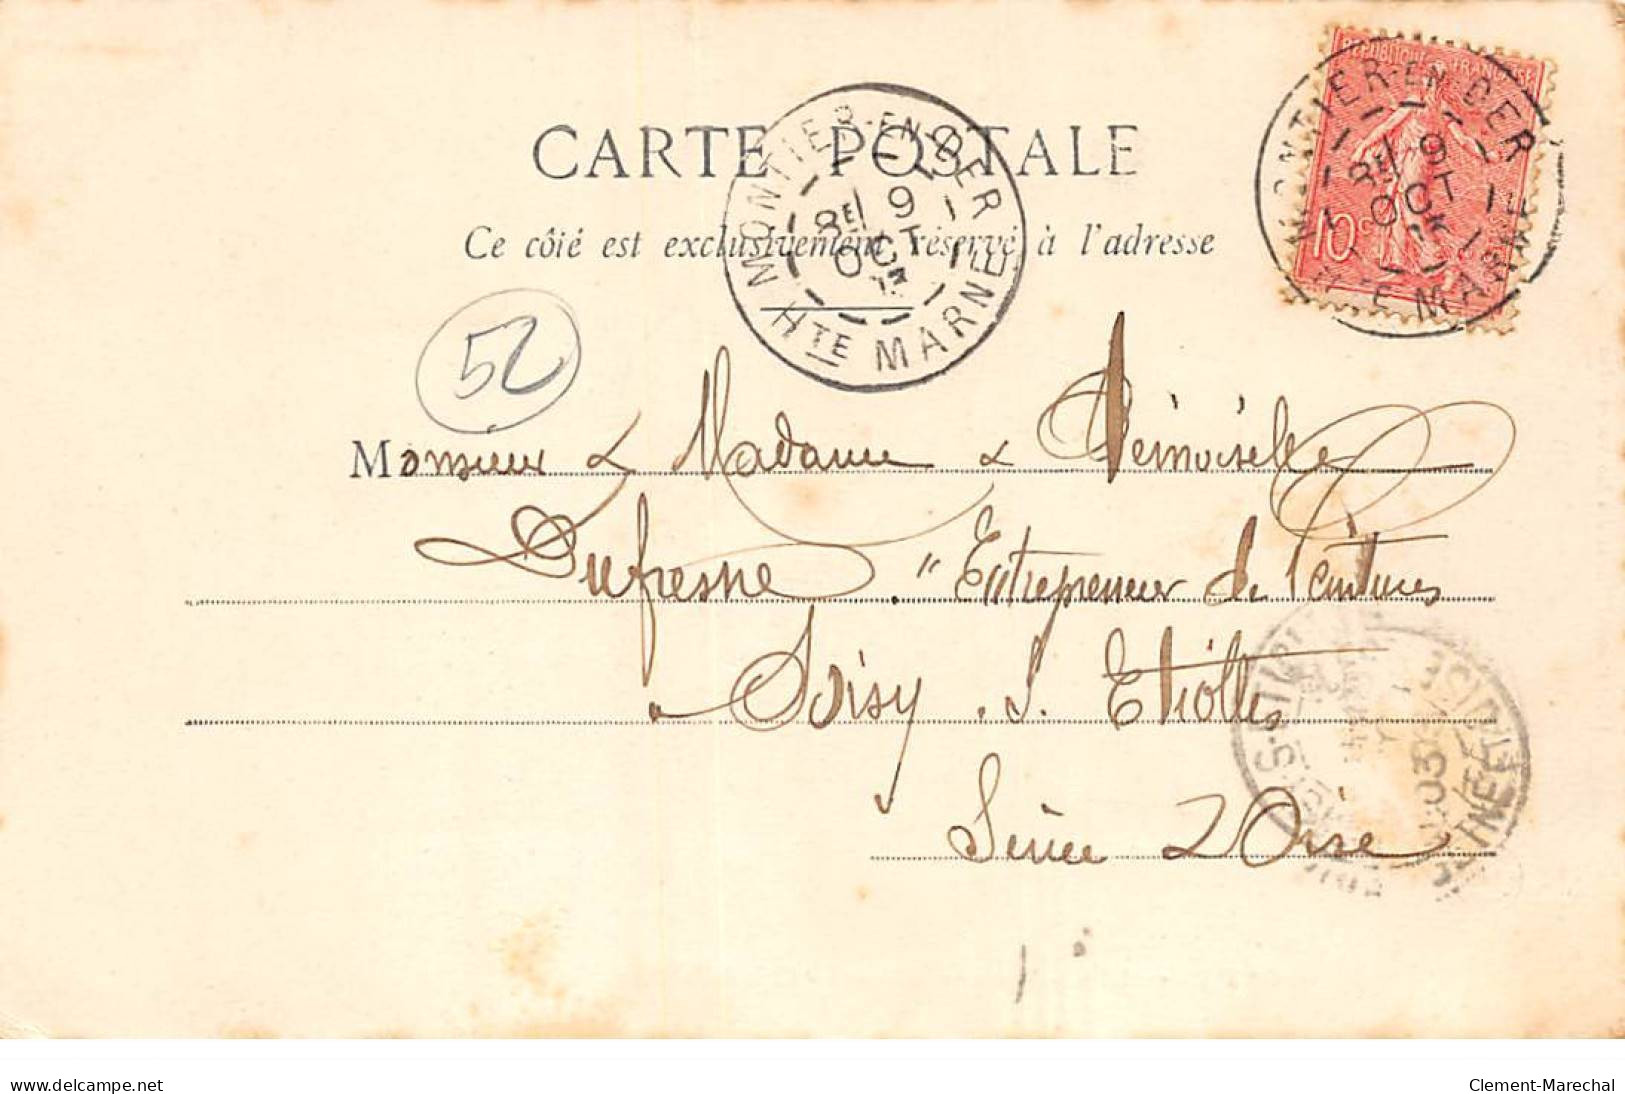 REPUBLIQUE FRANÇAISE
10c
MONTIER-EN-DER
8E 9
OCT
HTE MARNE
MONTIER-EN-DER
8E 9
OCT
HTE MARNE
CARTE POSTALE
Ce côté est exclusivement réservé à l'adresse
52
Monsieur & Madame & Demoiselle
Dufresne. "Entrepreneur de Peintures
à Soisy. s. Etiolles
Seine & Oise
delcampe.net
Clement-Marechal